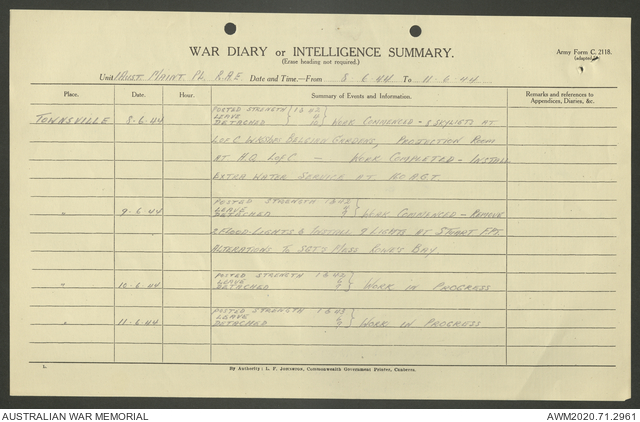 WAR DIARY or INTELLIGENCE SUMMARY.
(Erase heading not required.)
Army Form C. 2118.
(adapted)
Unit 1 Aust. Maint. Pl. R.A.E. Date and Time.—From 8.6.44 To 11.6.44
Place. Date. Hour. Summary of Events and Information. Remarks and references to Appendices, Diaries, &c.
TOWNSVILLE 8.6.44 POSTED STRENGTH 1 &
LEAVE
DETACHED WORK COMMENCED - 8 SKYLISTS AT
L of C Belgian Gardens, Production Room
AT H.Q. L of C — WORK COMPLETED - INSTALL
EXTRA WATER SERVICE AT A.G.T.
" 9.6.44 POSTED STRENGTH 1 &
LEAVE
DETACHED WORK COMMENCED - REMOVE
2 FLOOD-LIGHTS & INSTALL 9 LIGHTS AT STUART
ALTERATIONS TO SGTS MESS ROWE'S BAY.
" 10.6.44 POSTED STRENGTH 1 & 42
LEAVE
DETACHED WORK IN PROGRESS
" 11.6.44 POSTED STRENGTH 1 & 43
LEAVE
DETACHED WORK IN PROGRESS
L.
By Authority: L. F. Johnston, Commonwealth Government Printer, Canberra.
AUSTRALIAN WAR MEMORIAL
AWM2020.71.2961